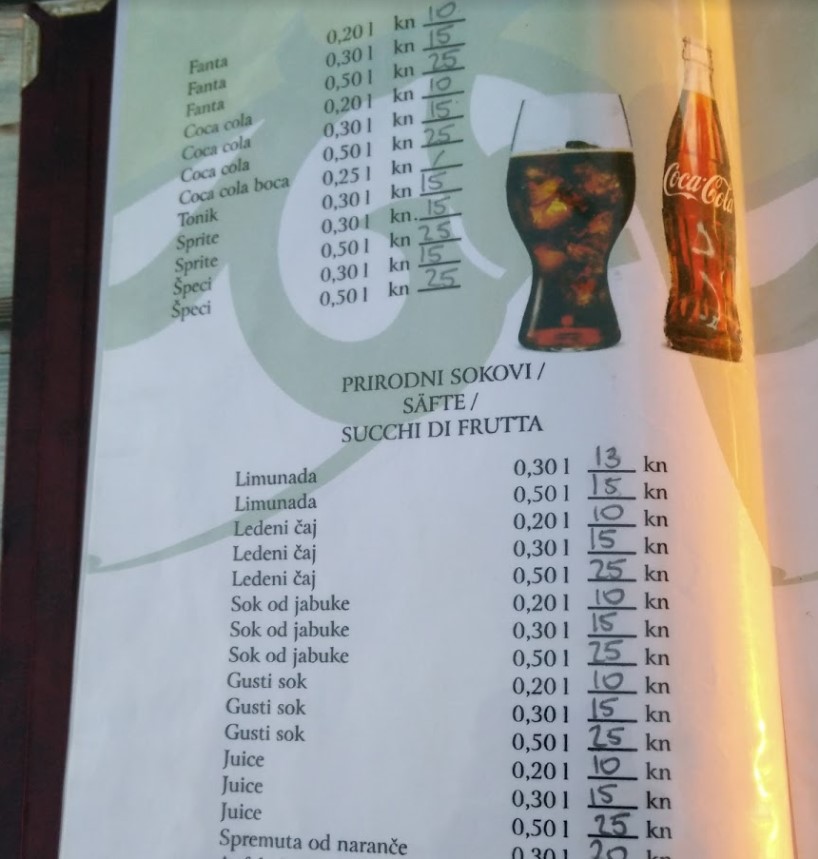 Fanta 0,20 l kn 10
Fanta 0,30 l kn 15
Fanta 0,50 l kn 25
Coca cola 0,20 l kn 10
Coca cola 0,30 l kn 15
Coca cola 0,50 l kn 25
Coca cola boca 0,25 l kn /
Tonik 0,30 l kn 15
Sprite 0,30 l kn 15
Sprite 0,50 l kn 25
Špeci 0,30 l kn 15
Špeci 0,50 l kn 25
Coca-Cola
PRIRODNI SOKOVI /
SÄFTE /
SUCCHI DI FRUTTA
Limunada 0,30 l 13 kn
Limunada 0,50 l 15 kn
Ledeni čaj 0,20 l 10 kn
Ledeni čaj 0,30 l 15 kn
Ledeni čaj 0,50 l 25 kn
Sok od jabuke 0,20 l 10 kn
Sok od jabuke 0,30 l 15 kn
Sok od jabuke 0,50 l 25 kn
Gusti sok 0,20 l 10 kn
Gusti sok 0,30 l 15 kn
Gusti sok 0,50 l 25 kn
Juice 0,20 l 10 kn
Juice 0,30 l 15 kn
Juice 0,50 l 25 kn
Spremuta od naranče 0,30 l 20 kn